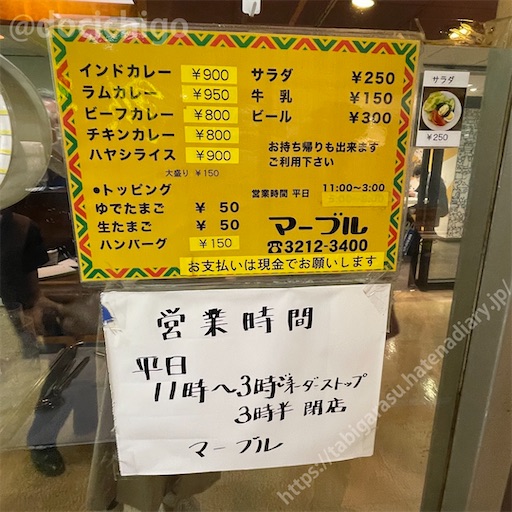 @dosichigo
インドカレー ￥900
ラムカレー ￥950
ビーフカレー ￥800
チキンカレー ￥800
ハヤシライス ￥900
大盛り ￥150
●トッピング
ゆでたまご ￥ 50
生たまご ￥ 50
ハンバーグ ￥150
サラダ ￥250
牛 乳 ￥150
ビール ￥300
お持ち帰りも出来ます
ご利用下さい
営業時間 平日 11:00～3:00
マーブル
☎3212-3400
お支払いは現金でお願いします
サラダ
￥250
営業時間
平日
11時～3時 オーダーストップ
3時半 閉店
マーブル
https://tabigarasu.hatenadiary.jp/